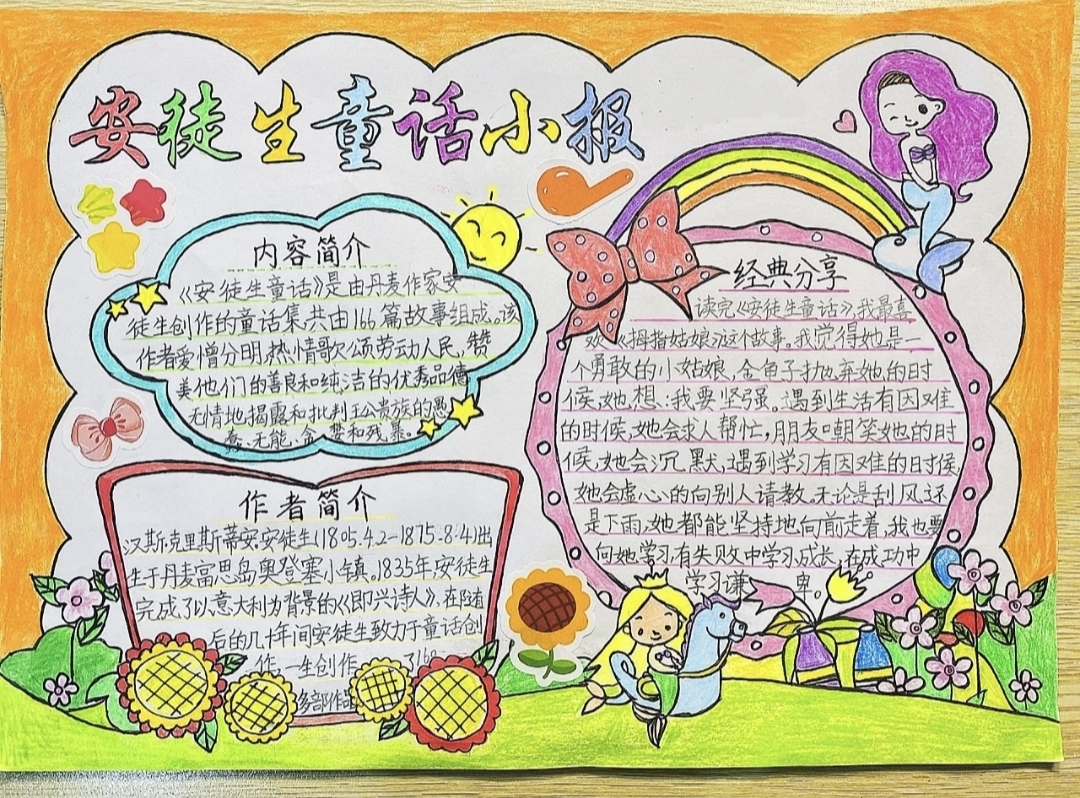 安徒生童话小报
内容简介
《安徒生童话》是由丹麦作家安
徒生创作的童话集,共由166篇故事组成。该
作者爱憎分明,热情歌颂劳动人民,赞
美他们的善良和纯洁的优秀品德
无情地揭露和批判王公贵族的愚
蠢、无能、贪婪和残暴。
作者简介
汉斯·克里斯蒂安·安徒生(1805.4.2-1875.8.4)出
生于丹麦富恩岛奥登塞小镇。1835年安徒生
完成了以意大利为背景的《即兴诗人》,在随
后的几十年间安徒生致力于童话创
作,一生创作了168
多部作品
经典分享
读完《安徒生童话》,我最喜
欢《拇指姑娘》这个故事。我觉得她是一
个勇敢的小姑娘,金鱼子抛弃她的时
候,她想:我要坚强。遇到生活有困难
的时候,她会求人帮忙,朋友嘲笑她的时
候,她会沉默,遇到学习有困难的时候,
她会虚心的向别人请教,无论是刮风还
是下雨,她都能坚持地向前走着,我也要
向她学习有失败中学习成长,在成功中
学习谦卑。